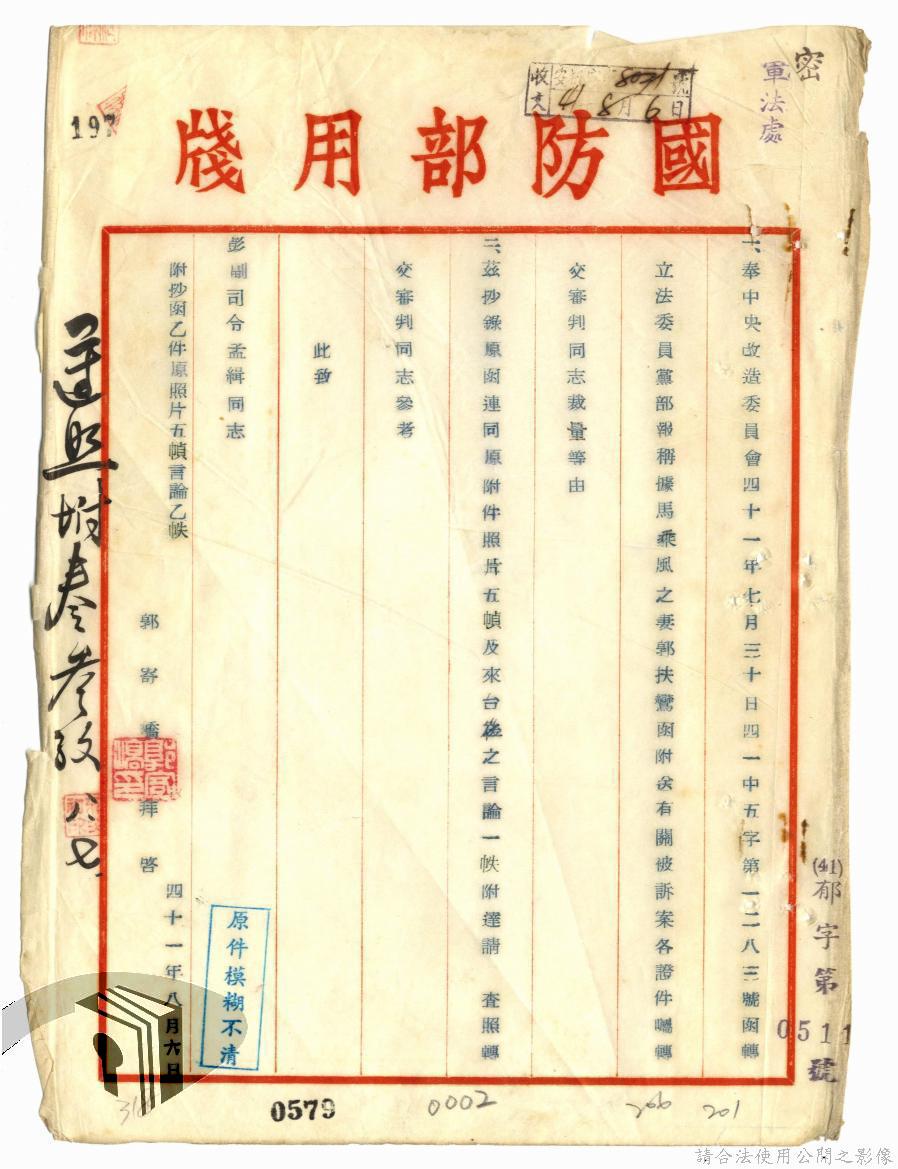 密
軍法處
收文 8021號
41 8月6日
國防部用牋
197
一、奉中央改造委員會四十一年七月三十日四一中五字第一二八三號函轉
立法委員黨部報稱據馬乘風之妻郭扶鸞函附送有關被訴案各證件囑轉
交審判同志裁量等由
二、茲抄錄原函連同原附件照片五幀及來台後之言論一帙附達請 查照轉
交審判同志參考
此致
彭副司令孟緝同志
附抄函乙件原照片五幀言論乙帙
郭寄嶠拜啓
四十一年八月六日
(41)郁字第0511號
原件模糊不清
八七
0579
0002
200
201
請合法使用公開之影像